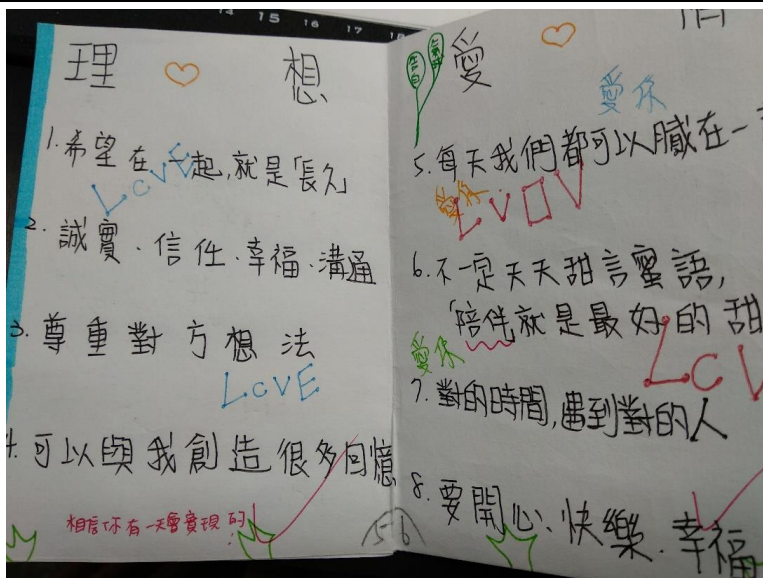 14 15 16 17 18
理 想
1.希望在一起,就是「長久」
LOVE
2.誠實、信任、幸福、溝通
3.尊重對方想法
LOVE
4.可以與我創造很多回憶
相信你有一天會實現的!
5-6
告白 氣球
愛 情
愛你
5.每天我們都可以膩在一
愛你
LVOV
6.不一定天天甜言蜜語,
「陪伴就是最好的甜
愛你
LOV
7.對的時間,遇到對的人
8.要開心、快樂、幸福